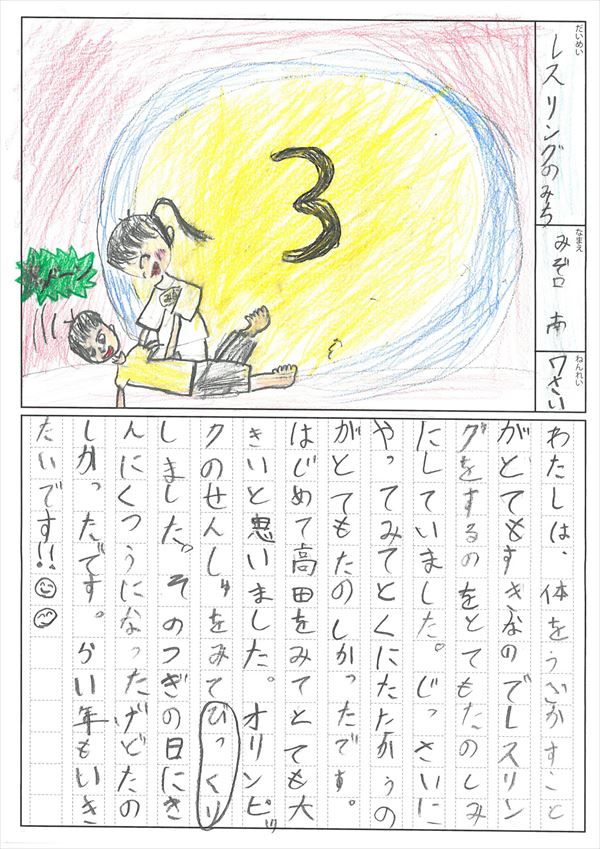 だいめい
レスリングのみち
なまえ
みぞ口 南
ねんれい
7さい
3
ドーン
わたしは、体をうごかすこと
がとてもすきなのでレスリン
グをするのをとてもたのしみ
にしていました。じっさいに
やってみてとくにたたかうの
がとてもたのしかったです。
はじめて高田をみてとても大
きいと思いました。オリンピッ
クのせんしゅをみてびっくり
しました。そのつぎの日にき
んにくつうになったけどたの
しかったです。らい年もいき
たいです!!